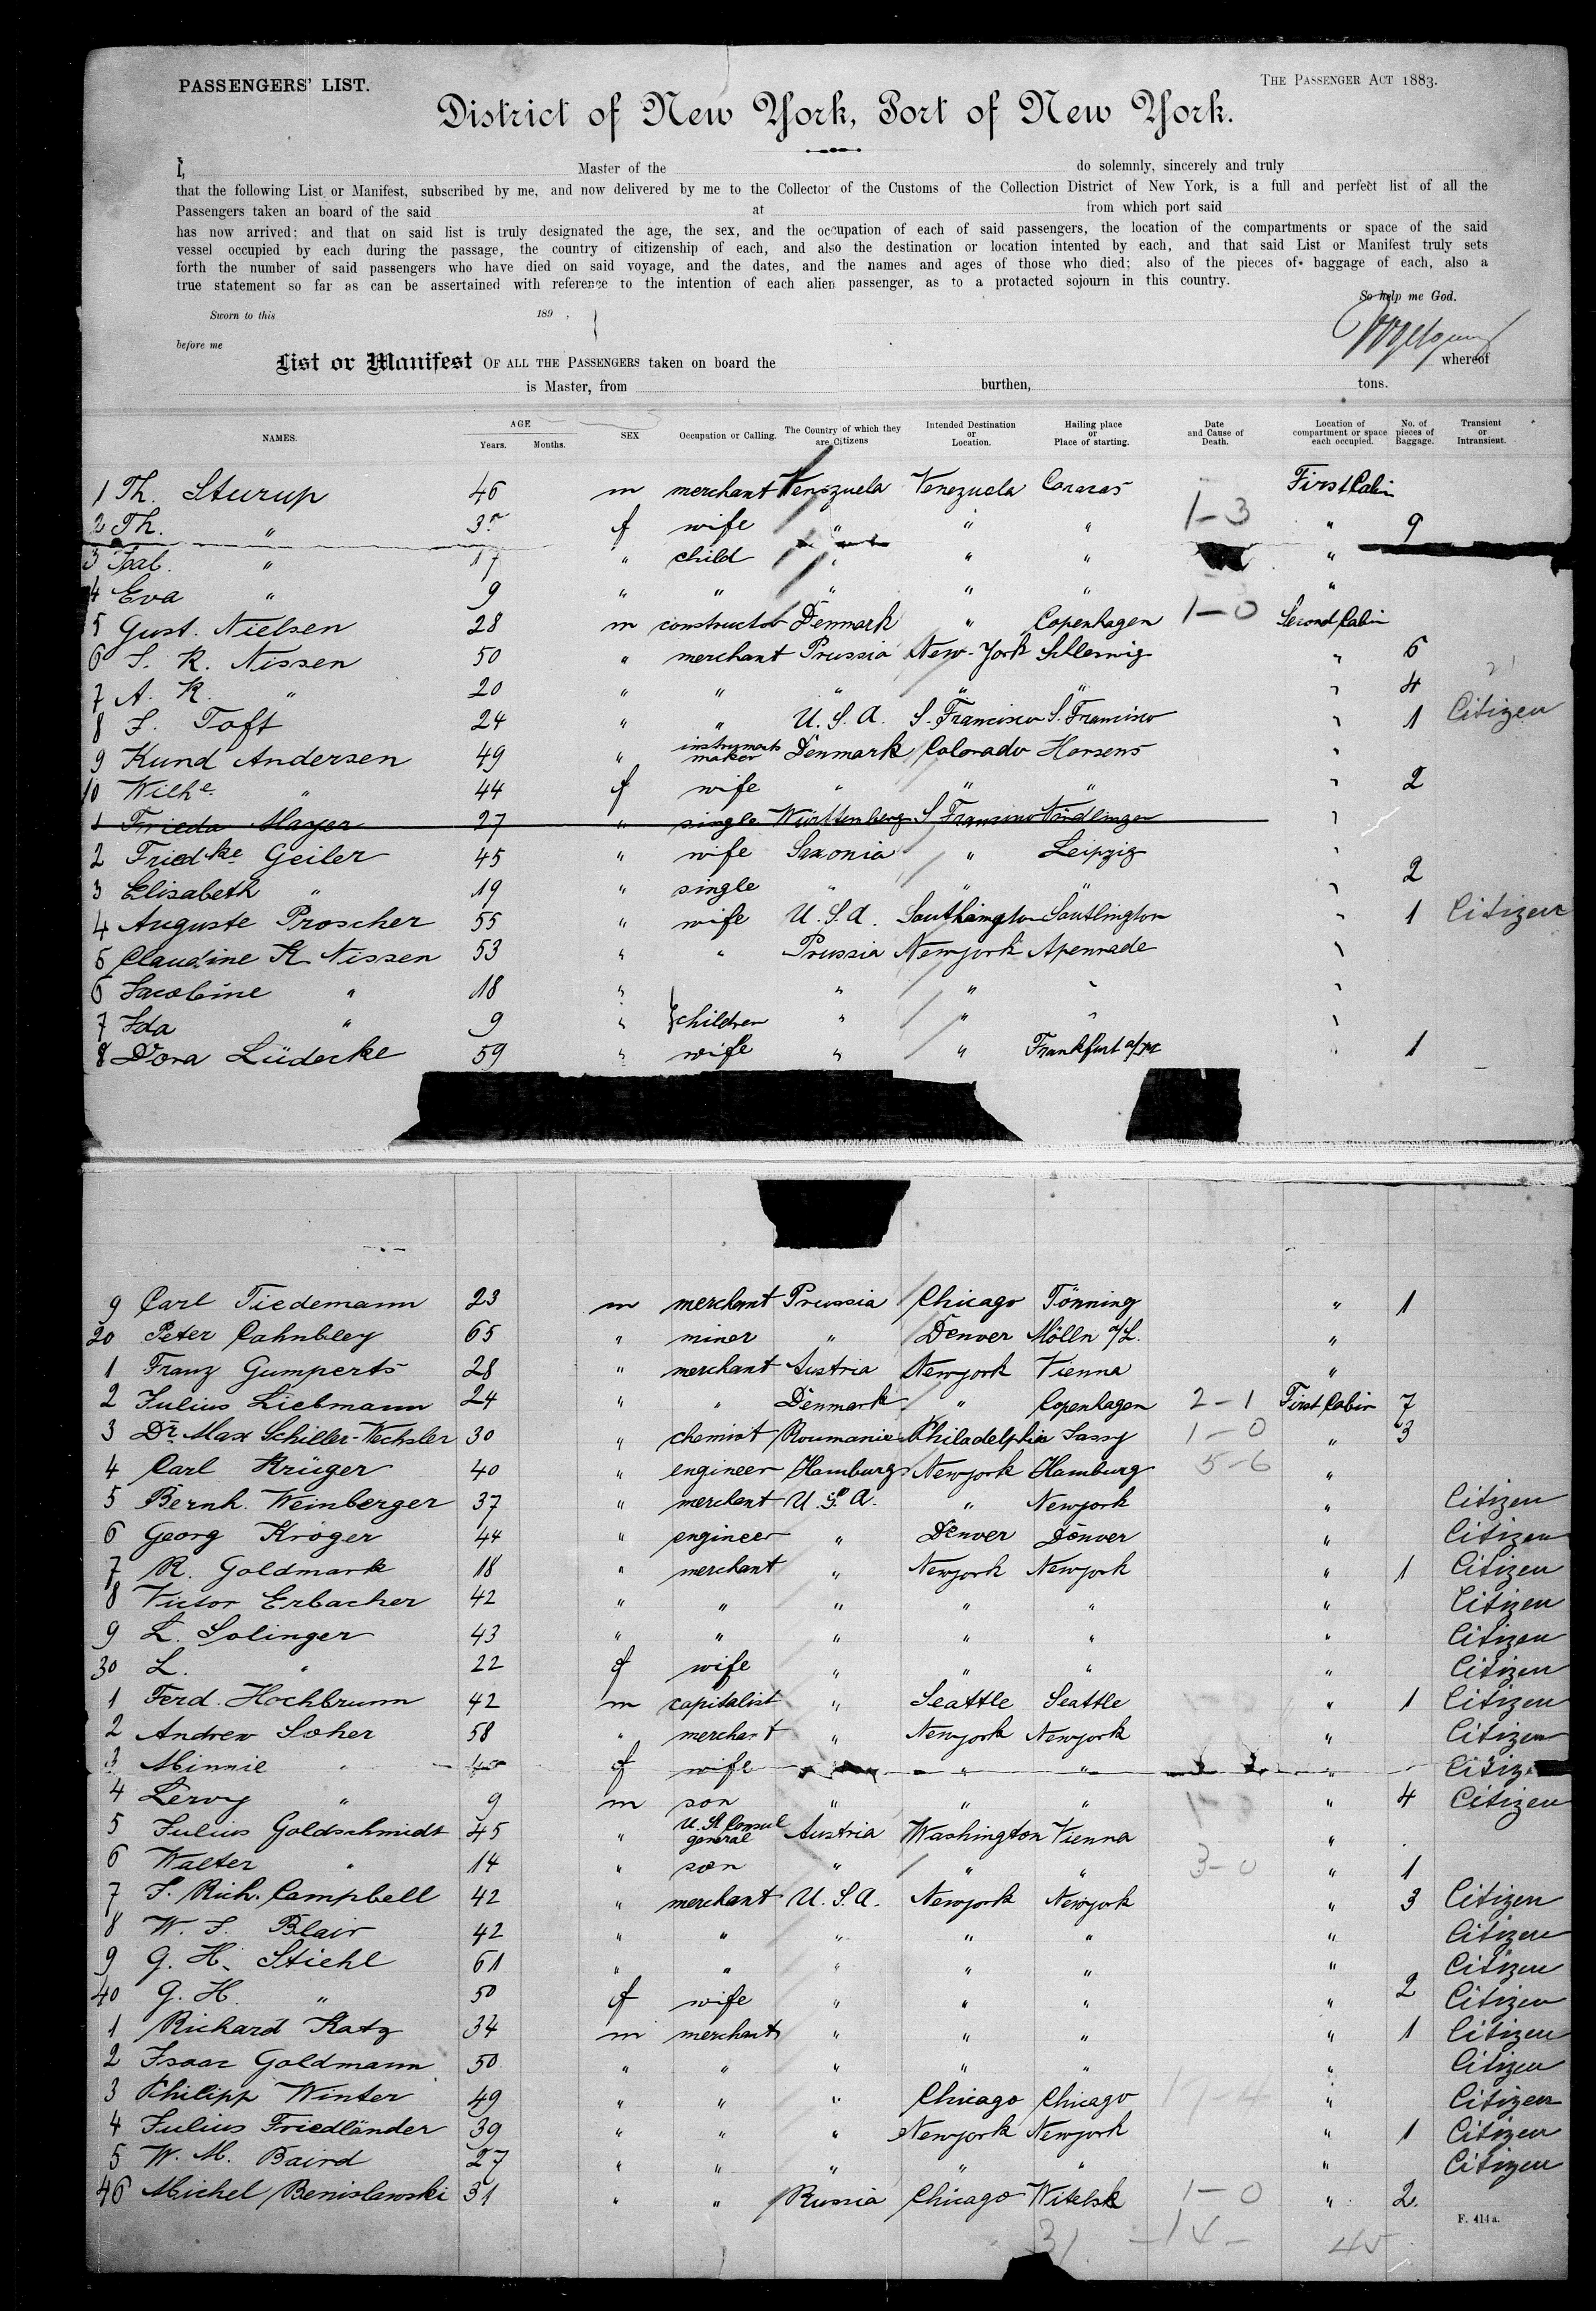 PASSENGERS' LIST.
THE PASSENGER ACT 1883.
District of New York, Port of New York.
I, Master of the do solemnly, sincerely and truly
that the following List or Manifest, subscribed by me, and now delivered by me to the Collector of the Customs of the Collection District of New York, is a full and perfect list of all the
Passengers taken an board of the said at from which port said
has now arrived; and that on said list is truly designated the age, the sex, and the occupation of each of said passengers, the location of the compartments or space of the said
vessel occupied by each during the passage, the country of citizenship of each, and also the destination or location intented by each, and that said List or Manifest truly sets
forth the number of said passengers who have died on said voyage, and the dates, and the names and ages of those who died; also of the pieces of baggage of each, also a
true statement so far as can be assertained with reference to the intention of each alien passenger, as to a protacted sojourn in this country.
So help me God.
Sworn to this 189 ,
before me
List or Manifest OF ALL THE PASSENGERS taken on board the whereof
is Master, from burthen, tons.
NAMES. AGE Years. Months. SEX Occupation or Calling. The Country of which they are Citizens Intended Destination or Location. Hailing place or Place of starting. Date and Cause of Death. Location of compartment or space each occupied. No. of pieces of Baggage. Transient or Intransient.
1 Th. Sturup 46 m merchant Venezuela Venezuela Caracas First Cabin
2 Th. " f wife " " " 1-3 " 9
3 " 17 " child " " " "
4 Eva " 9 " " " " " "
5 Gust. Nielsen 28 m constructor Denmark " Copenhagen 1-0 Second Cabin
6 J. K. Nissen 50 " merchant Prussia New-York Schleswig " 6
7 A. K. " 20 " " " " " " 4
8 J. Toft 24 " " U.S.A. S. Francisco S. Francisco " 1 Citizen
9 Kund Andersen 49 " instruments maker Denmark Colorado Horsens "
10 Wilhe. " 44 f wife " " " " 2
1 Frieda Mayer 27 " single Württemberg S. Francisco Nördlingen "
2 Friedke Geiler 45 " wife Saxonia " Leipzig "
3 Elisabeth " 19 " single " " " " 2
4 Auguste Proscher 55 " wife U.S.A. Southington Southington " 1 Citizen
5 Claudine K. Nissen 53 " " Prussia Newyork Apenrade "
6 Jacobine " 18 " " " " "
7 Ida " 9 " children " " " "
8 Dora Lüdecke 59 " wife " " Frankfurt a/M " 1
9 Carl Tiedemann 23 m merchant Prussia Chicago Tönning " 1
20 Peter Cahnbley 65 " miner " Denver Mölln a/L. "
1 Franz Gumperts 28 " merchant Austria Newyork Vienna "
2 Julius Liebmann 24 " " Denmark " Copenhagen 2-1 First Cabin 7
3 Dr. Max Schiller-Wechsler 30 " chemist Roumanie Philadelphia Jassy 1-0 " 3
4 Carl Krüger 40 " engineer Hamburg Newyork Hamburg 5-6 "
5 Bernh. Weinberger 37 " merchant U.S.A. " Newyork " Citizen
6 Georg Kröger 44 " engineer " Denver Denver " Citizen
7 R. Goldmark 18 " merchant " Newyork Newyork " 1 Citizen
8 Victor Erbacher 42 " " " " " " Citizen
9 L. Solinger 43 " " " " " " Citizen
30 L. " 22 f wife " " " " Citizen
1 Ferd. Hochbrunn 42 m capitalist " Seattle Seattle " 1 Citizen
2 Andrew Soher 58 " merchant " Newyork Newyork " Citizen
3 Minnie " f wife " " "
4 Leroy " 9 m son " " " " 4 Citizen
5 Julius Goldschmidt 45 " U. St. Consul general Austria Washington Vienna "
6 Walter " 14 " son " " " 3-0 " 1
7 J. Rich. Campbell 42 " merchant U.S.A. Newyork Newyork " 3 Citizen
8 W. J. Blair 42 " " " " " " Citizen
9 G. H. Stiehl 61 " " " " " " Citizen
40 G. H. " 50 f wife " " " " 2 Citizen
1 Richard Katz 34 m merchant " " " " 1 Citizen
2 Isaac Goldmann 50 " " " " " " Citizen
3 Philipp Winter 49 " " " Chicago Chicago " Citizen
4 Julius Friedländer 39 " " " Newyork Newyork " 1 Citizen
5 W. M. Baird 27 " " " " " " Citizen
46 Michel Benislawski 31 " " Russia Chicago Witebsk 1-0 " 2.
F. 414a.
31